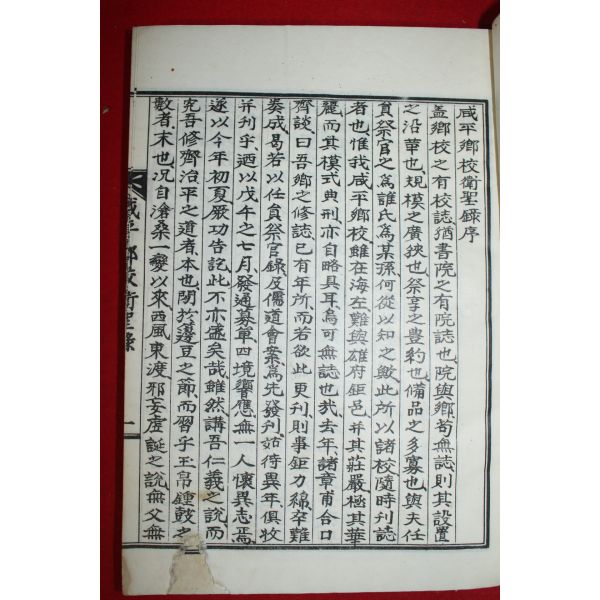 咸平鄕校衛聖錄序
盖鄕校之有校誌猶書院之有院誌也院與鄕苟無誌則其設置
之沿革也規模之廣狹也祭享之豊約也備品之多寡也與夫任
員祭官之爲誰氏爲某孫何從以知之歟此所以諸校隨時刊誌
者也惟我咸平鄕校雖在海左難與雄府鉅邑并其莊嚴極其華
麗而其模式典刑亦自略具耳烏可無誌也哉去年諸章甫合口
齊談曰吾鄕之修誌已有年所而若欲此更刊則事鉅力綿卒難
奏成曷若以任員祭官錄及儒道會案爲先發刊姑待異年俱收
并刊乎迺以戊午之七月發通募單四境響應無一人懷異志焉
遂以今年初夏嚴功告訖此不亦盛矣哉雖然講吾仁義之說而
究吾修齊治平之道者本也閑於籩豆之節而習乎玉帛鍾鼓之
數者末也况自滄桑一變以來西風東渡邪妄虛誕之說無父無
咸平鄕校衛聖錄
一